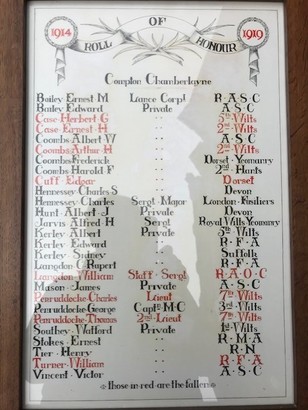 1914 OF 1919
ROLL HONOUR
Compton Chamberlayne
Bailey·Ernest M Lance Corpl R·A·S·C
Bailey·Edward Private A·S·C
Case·Herbert G ·· 5th·Wilts
Case·Ernest·H ·· 2nd·Wilts
Coombs·Albert W ·· A·S·C
Coombs·Arthur·H ·· 2nd·Wilts
Coombs·Frederick ·· Dorset·Yeomanry
Coombs·Harold F ·· 2nd·Hants
Cuff·Edgar ·· Dorset
Hennessey·Charles·S ·· Devon
Hennessey·Charles Sergt·Major London·Fusiliers
Hunt·Albert·J Private Devon
Jarvis·Alfred·H Sergt Royal Wilts·Yeomny
Kerley·Albert Private 5th·Wilts
Kerley·Edward ·· R·F·A
Kerley·Sidney ·· Suffolk
Langdon·C·Rupert ·· R·F·A
Langdon·William Staff·Sergt R·A·O·C
Mason·James Private A·S·C
Penruddocke·Charles Lieut 7th·Wilts
Penruddocke·George Capt·M·C 3rd·Wilts
Penruddocke·Thomas 2nd·Lieut 7th·Wilts
Southey·Wafford Private 1st·Wilts
Stokes·Ernest ·· R·M·A
Tier·Henry ·· R·N
Turner·William ·· R·F·A
Vincent·Victor ·· A·S·C
those·in·red·are·the·fallen